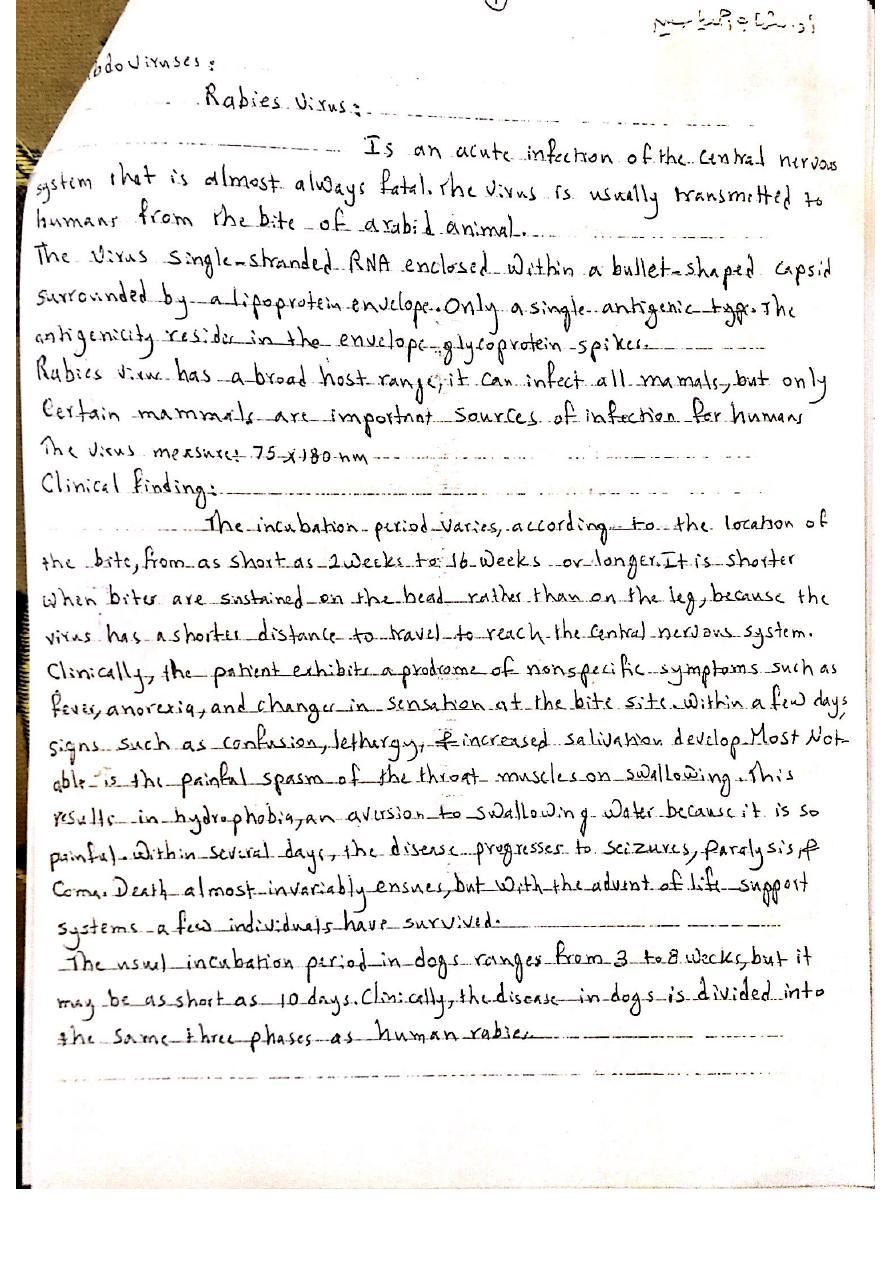 1
bdo Viruses:
Rabies Virus:
Is an acute infection of the central nervous
system that is almost always fatal. The virus is usually transmitted to
humans from the bite of arabid animal.
The Virus single-stranded RNA enclosed within a bullet-shaped capsid
surrounded by a lipoprotein envelope. Only a single antigenic type. The
antigenicity resides in the envelope glycoprotein spikes.
Rabies virus has a broad host range, it can infect all mamals, but only
Certain mammals are important sources of infection for humans
The virus measures 75 x 180 nm
Clinical finding:
The incubation period varies, according to the location of
the bite, from as short as 2 weeks to 16 weeks or longer. It is shorter
when bites are sustained on the head rather than on the leg, because the
virus has a shorter distance to travel to reach the central nervous system.
Clinically, the patient exhibits a prodrome of nonspecific symptoms such as
fever, anorexia, and changes in sensation at the bite site. Within a few days,
signs such as confusion, lethergy, & increased salivation develop. Most Not-
able is the painful spasm of the throat muscles on swallowing. This
results in hydrophobia, an aversion to swallowing water because it is so
painful. Within several days, the disease progresses to seizures, paralysis, &
Coma. Death almost invariably ensues, but with the advent of life support
systems a few individuals have survived.
The usual incubation period in dogs ranges from 3 to 8 weeks, but it
may be as short as 10 days. Clinically, the disease in dogs is divided into
the same three phases as human rabies.